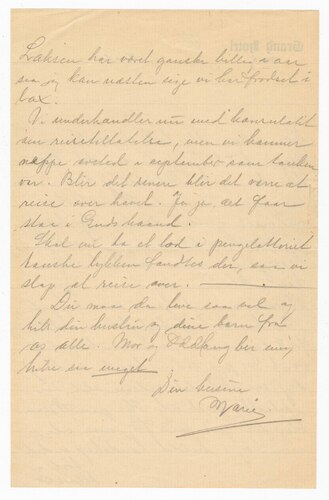 Laksen har været ganske billig i aar
saa jeg kan næsten sige vi har frodset i
lax.
Vi underhandler nu med konsulatet
om reisetilladelse, men vi kommer
neppe avsted i september som tanken
var. Blir det senere blir det værre at
reise over havet. Ja ja, det faar
staa i Guds haand.
Skal nu ta et lod i pengelotteriet
kanske lykken fandtes der, saa vi
slap at reise over.
Du maa da leve saa vel og
hils din hustru og dine barn fra
os alle. Mor og ber mig
hilse saa meget
Din kusine
Marie